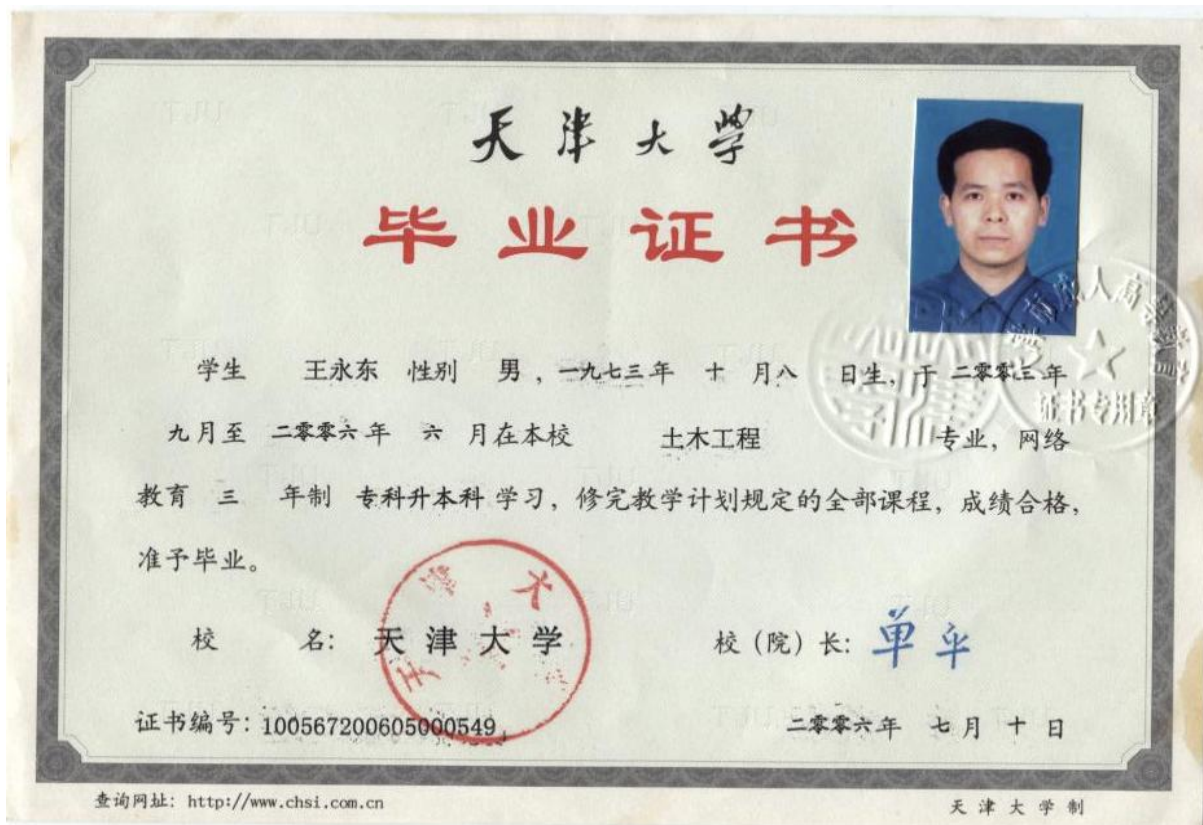 天津大学
毕业证书
学生 王永东 性别 男，一九七三年 十 月八 日生，于 二零零三年
九月至 二零零六年 六 月在本校 土木工程 专业，网络
教育 三 年制 专科升本科 学习，修完教学计划规定的全部课程，成绩合格，
准予毕业。
校 名：天津大学
校（院）长：单平
证书编号：100567200605000549
二零零六年 七月 十日
查询网址：http://www.chsi.com.cn
天津大学制
天津大
证书专用章